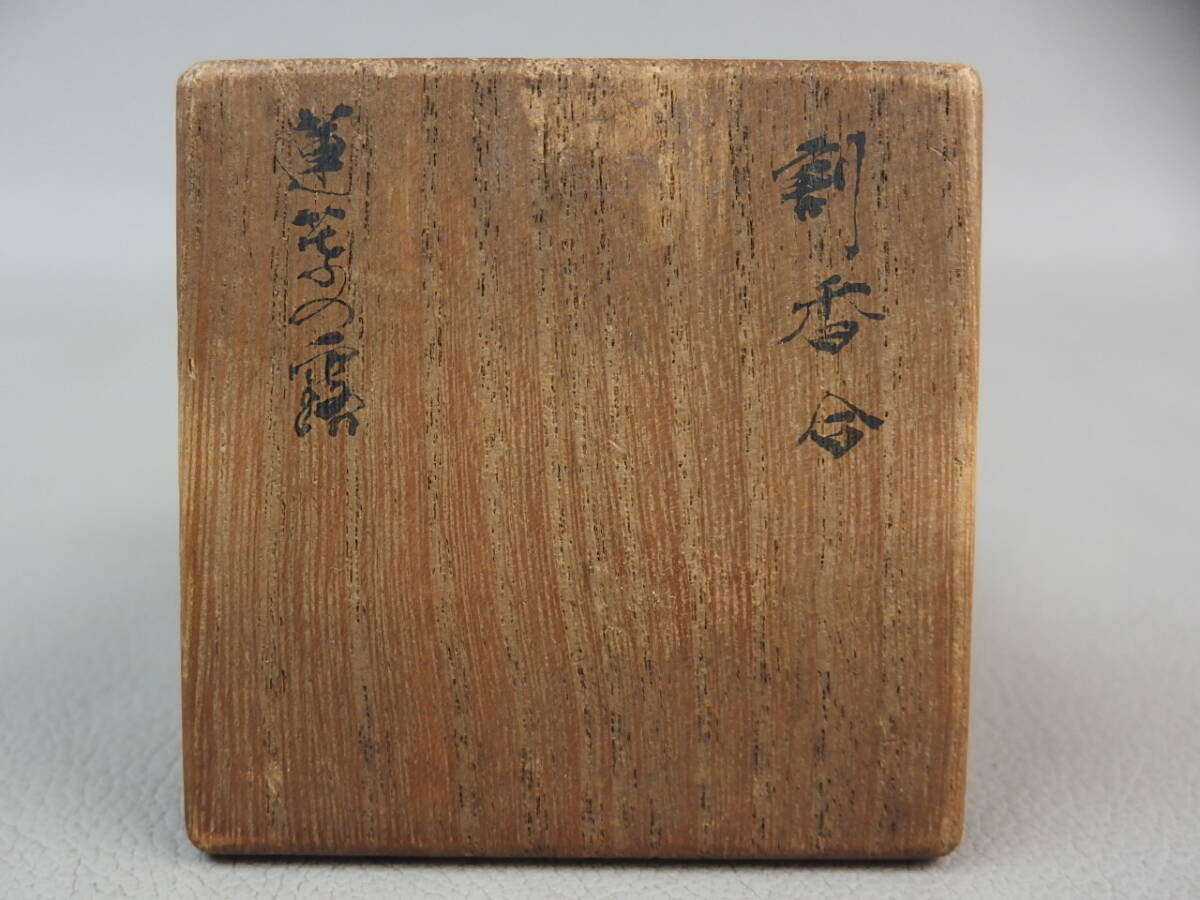 割香合
蓮葉の露